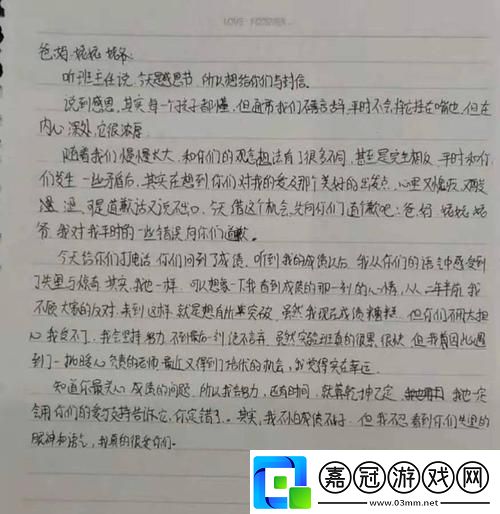 LOVE FOREVER...
爸.妈.妮妮.爷爷:
听班主任说,今天是感恩节,所以想给你们写封信。
说到感恩,其实每一个孩子都懂,但通常我们不善言辞,平时不会将它挂在嘴边,但在
内心深处,它很浓厚
随着我们慢慢长大,和你们的观念想法有了很多不同,甚至是完全相反,平时和你
们发生一些矛盾后,其实在想到你们对我的爱及那个美好的出发点,心里又愧疚又
,可是道歉话又说不出口,今天借这个机会,先向你们道个歉吧:爸,妈,
爷,我对我平时的一些错误向你们道歉。
今天给你们打电话,你们问到了成绩,听到我的成绩以后,我从你们的语气中感受到
了失望与惊奇,其实,我也一样,可以想象一下我看到成绩的那一刻的心情,从二年前,我
不顾大家的反对,来到这样,就是想有所突破,虽然我现在成绩糟糕,但你们不用太担
心,我受不了,我会坚持努力,不到最后一刻绝不言弃,虽然实验班真的很累,很快,但我有因此遇
到了一批暖心负责的老师,最近又得到了培优的机会,我觉得实在幸运。
知道你最关心成绩的问题,所以我会努力,还有时间,就算乾坤已定,我也一定
会用你们的爱与支持告诉它,你定错了。其实,我不怕成绩不好,但我不忍看到你们失望的
眼神和语气,我真的很爱你们。
嘉冠游戏网
www.03mm.net